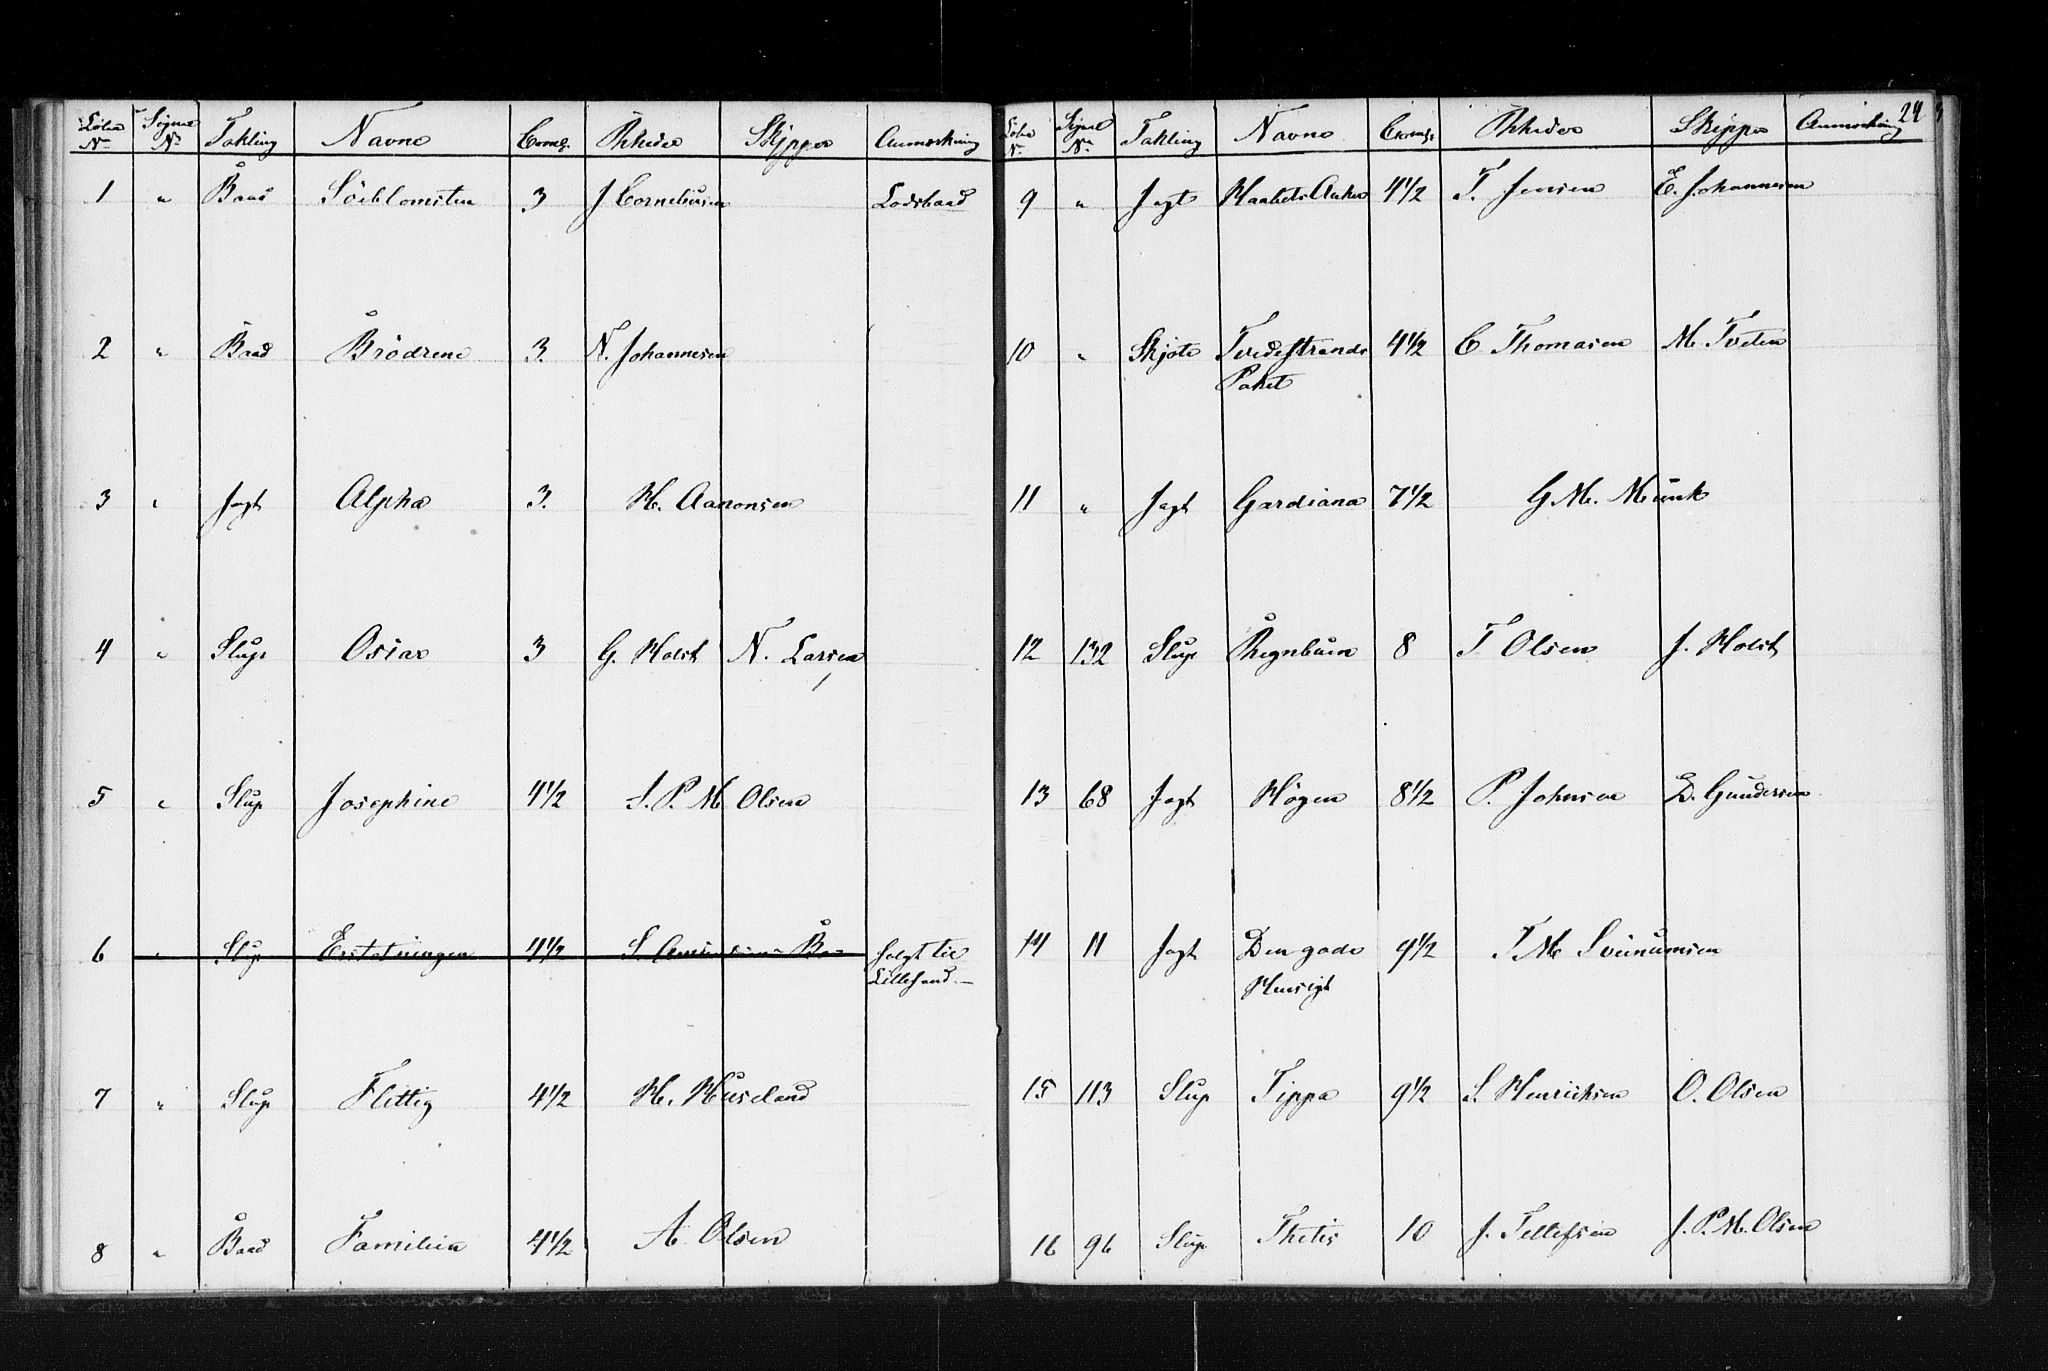 Löbe No Signal No Takling Navne Comlg. Rheder Skipper Anmærkning
1 " Baad Söeblomsten 3 J Corneliusen Lodsbaad
2 " Baad Brödrene 3. N. Johannesen
3 " Jagt Alpha 3. H. Aanonsen
4 " Slup Oscar 3 G. Holst N. Larsen
5 " Slup Josephine 4 1/2 S. P. M Olsen
6 " Slup 4 1/2 S. solgt til
Lillesand.
7 " Slup Flittig 4 1/2 H. Huseland
8 " Baad Familien 4 1/2 A. Olsen
24
Löbe N. Signal No Takling Navne Comlg. Rheder Skipper Anmærkning
9 " Jagt Haabets Anker 4 1/2 T. Jensen E. Johannesen
10 " Skjöte Tvedestrands 4 1/2 C Thomasen M. Tveten
Paket
11 " Jagt Gardiana 7 1/2 G M. Munk
12 132 Slup Regnbuen 8 T Olsen J. Holst
13 68 Jagt Högen 8 1/2 P. Johnsen D. Gundersen
14 11 Jagt Den gode 9 1/2 T M Svenumsen
Hensigt
15 113 Slup Tippa 9 1/2 S. Henricksen O. Olsen
16 96 Slup Thetis 10 J. Tellefsen J. P. M. Olsen